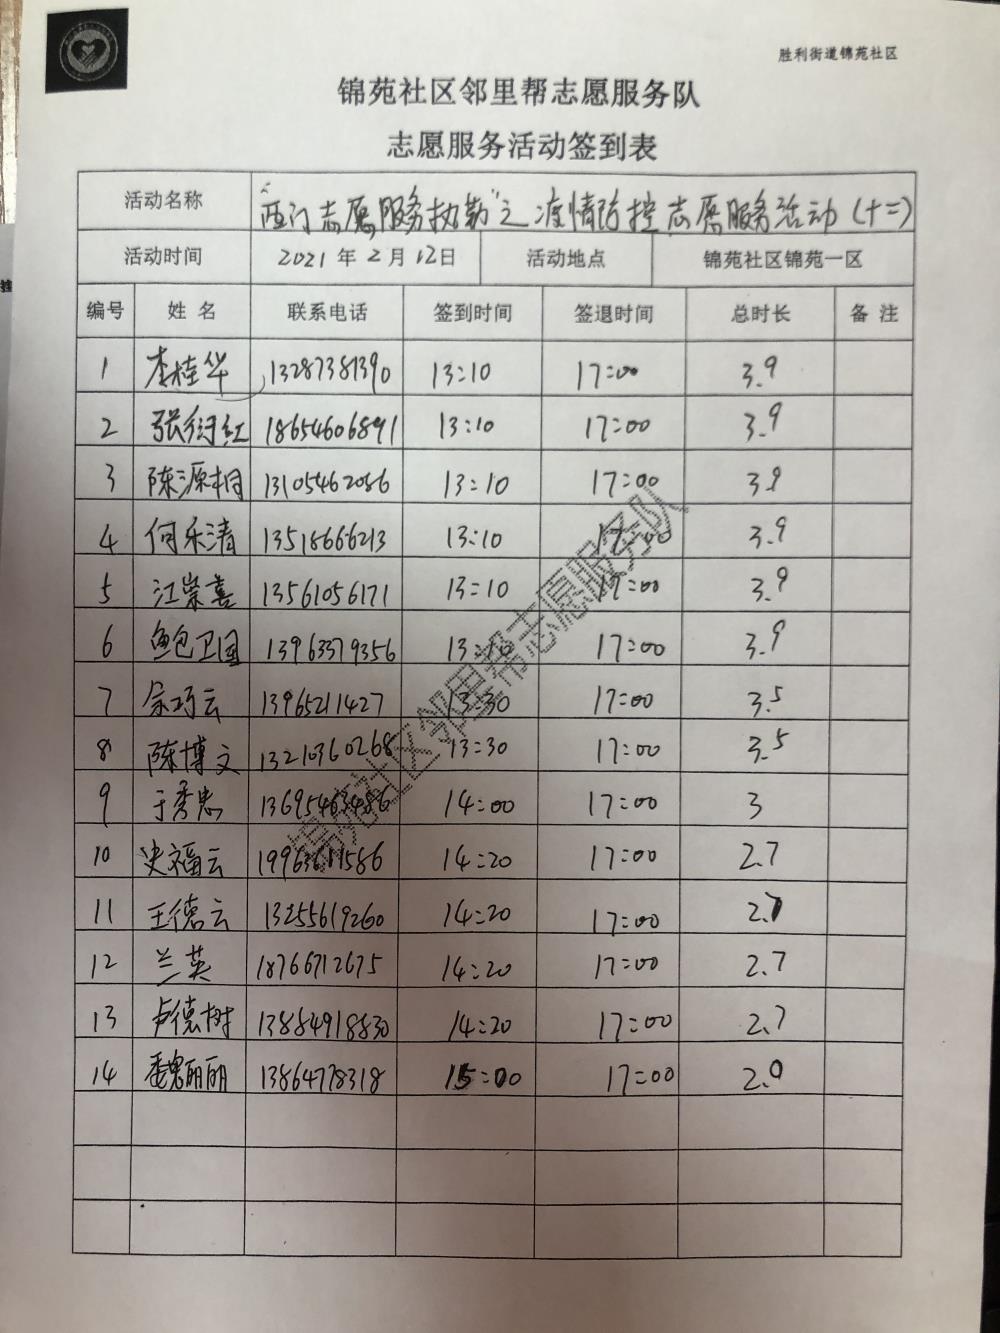 胜利街道锦苑社区
锦苑社区邻里帮志愿服务队
志愿服务活动签到表
活动名称 “西门志愿服务执勤”之疫情防控志愿服务活动(十二)
活动时间 2021年2月12日 活动地点 锦苑社区锦苑一区
编号 姓名 联系电话 签到时间 签退时间 总时长 备注
1 李桂华 13287381390 13:10 17:00 3.9
2 张衍红 18654606891 13:10 17:00 3.9
3 陈源桐 13105462086 13:10 17:00 3.9
4 何乐清 13518666213 13:10 17:00 3.9
5 江崇喜 13561056171 13:10 17:00 3.9
6 鲍卫国 13963379356 13:10 17:00 3.9
7 余巧云 13965211427 13:30 17:00 3.5
8 陈博文 13210360268 13:30 17:00 3.5
9 于秀忠 13695463486 14:00 17:00 3
10 史福云 19963611586 14:20 17:00 2.7
11 王德云 13255619260 14:20 17:00 2.7
12 兰英 18766712675 14:20 17:00 2.7
13 卢德树 13884918830 14:20 17:00 2.7
14 魏丽丽 13864778318 15:00 17:00 2.0
锦苑社区邻里帮志愿服务队